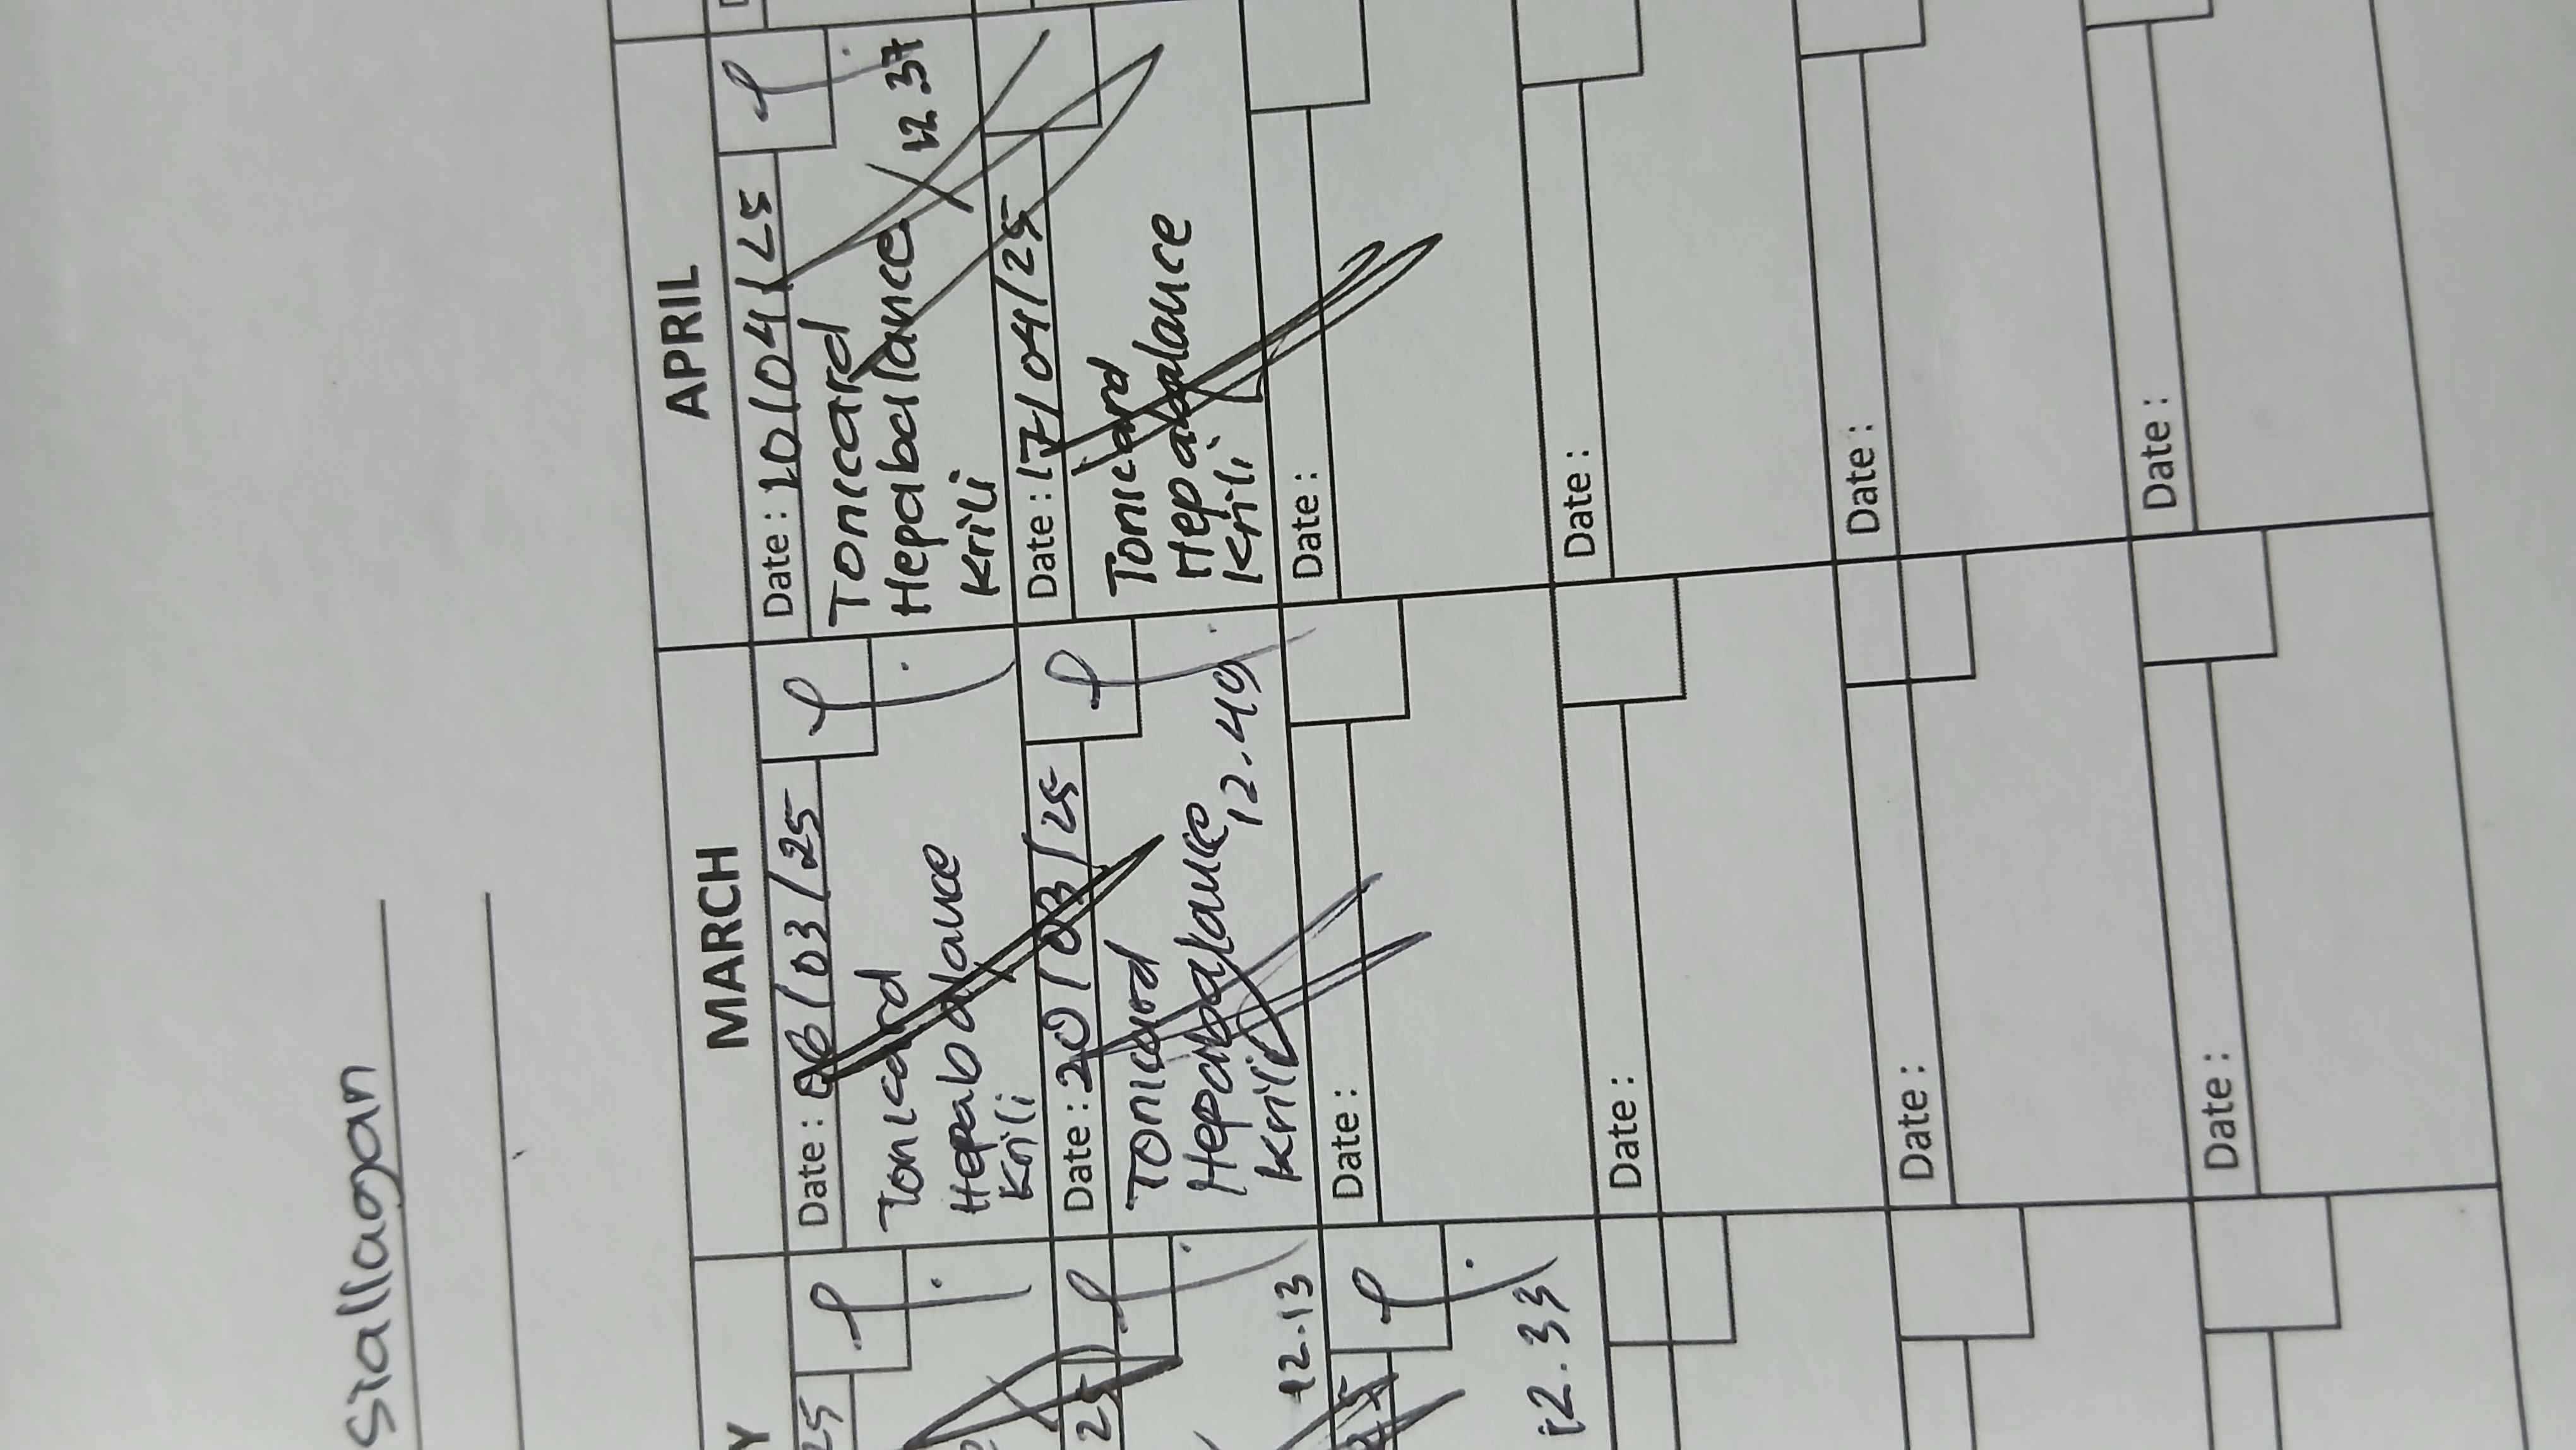 Siallagan
Y
MARCH
APRIL
25
Date : 06/03/25
Tonicard
Hepabalance
Krili
Date : 10/04/25
Tonicard
Hepabalance
Krili
12.37
25
12.13
Date : 20/03/25
Tonicard
Hepabalance
Krili
12.49
Date : 17/04/25
Tonicard
Hepabalance
Krili
25
12.33
Date :
Date :
Date :
Date :
Date :
Date :
Date :
Date :